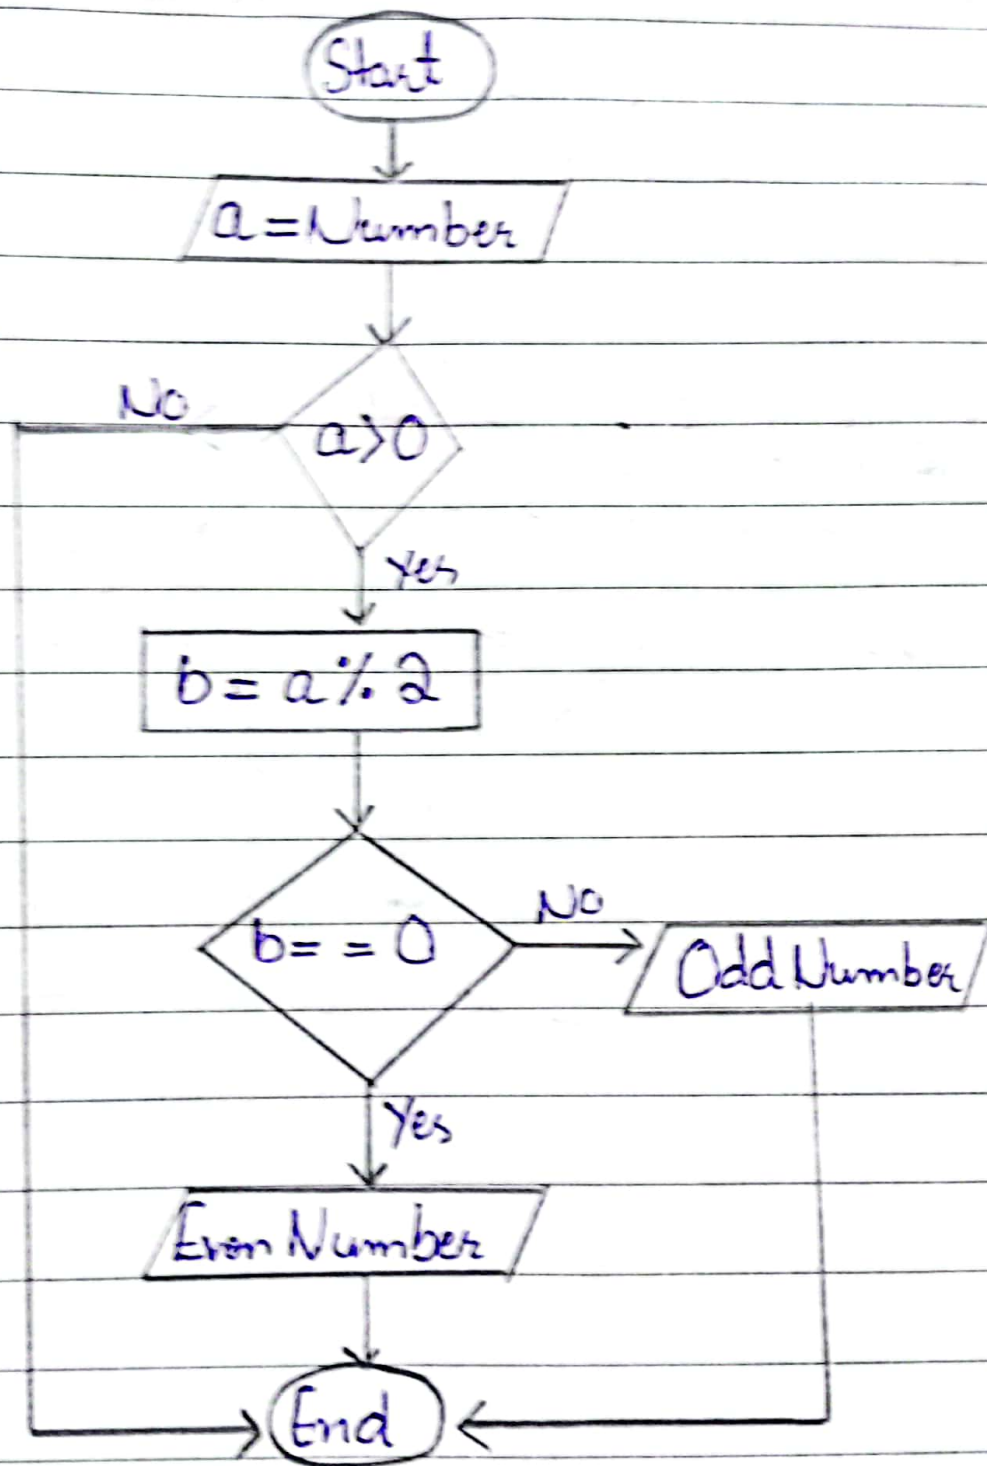 Start
a = Number
No
a>0
Yes
b = a % 2
b = = 0
No
Odd Number
Yes
Even Number
End